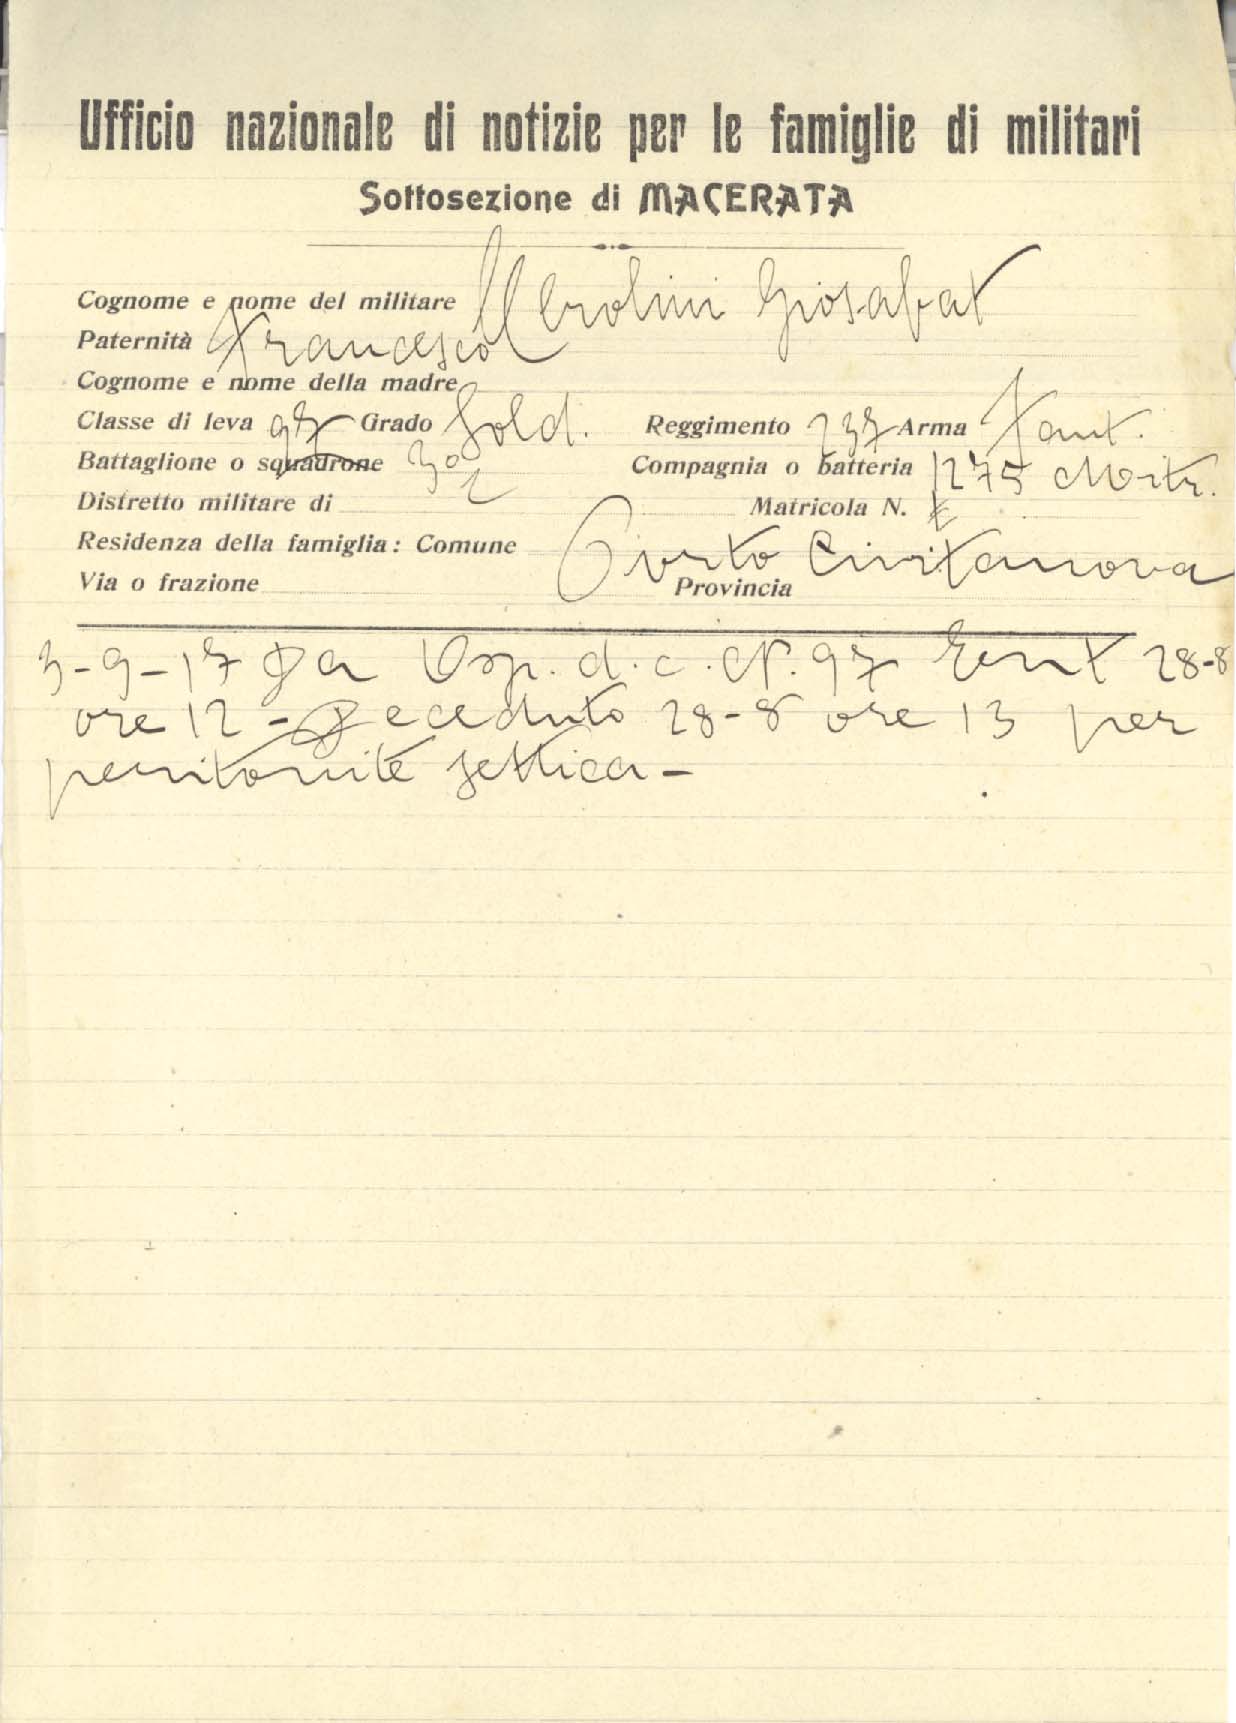 Ufficio nazionale di notizie per le famiglie di militari
Sottosezione di MACERATA
Cognome e nome del militare Merolini Giosafat
Paternità Francesco
Cognome e nome della madre
Classe di leva 97 Grado Sold. Reggimento 237 Arma Fant.
Battaglione o squadrone 3º Compagnia o batteria 1275 Mitr.
Distretto militare di Matricola N.
Residenza della famiglia: Comune Porto Civitanova
Via o frazione Provincia
3-9-17 Da Osp. d. c. N. 97 Ent 28-8
ore 12 - Deceduto 28-8 ore 13 per
peritonite settica -